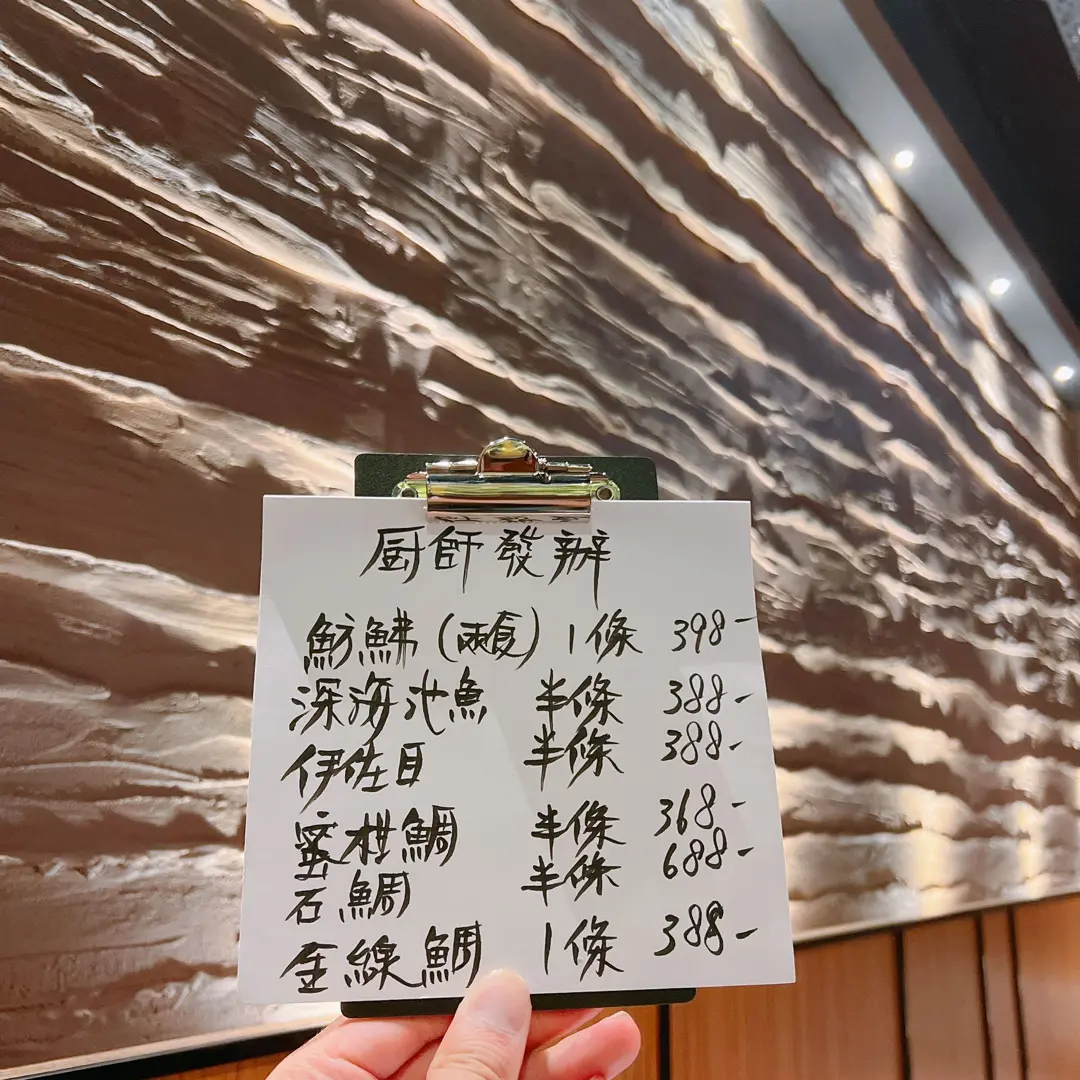 厨師發辦
魴鮄(兩食) 1條 398-
深海池魚 半條 388-
伊佐目 半條 388-
蜜柑鯛 半條 368-
石鯛 半條 688-
金線鯛 1條 388-